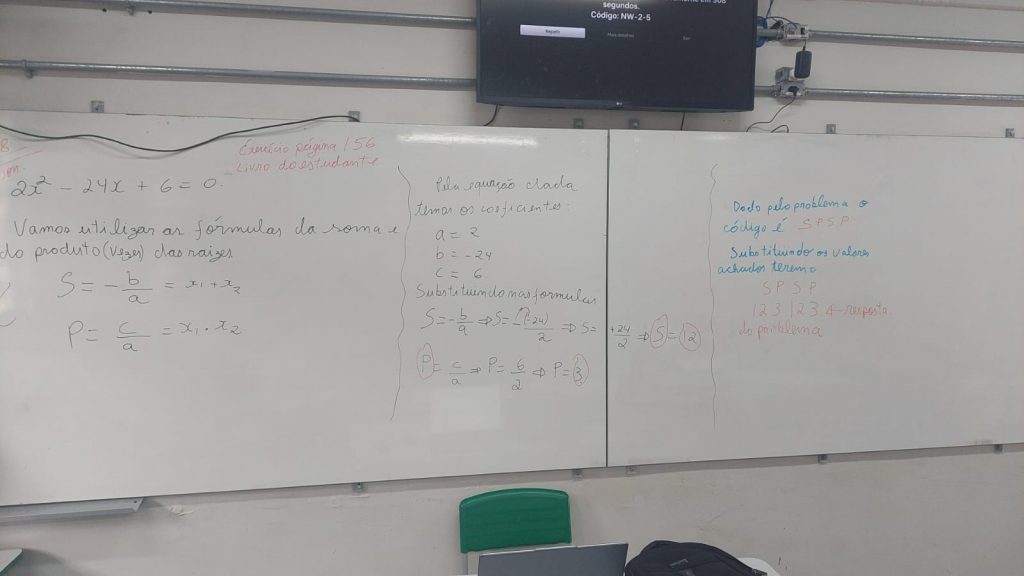 segundos.
Código: NW-2-5
Repetir
Mais detalhes
Sair
Exercício página 156
Livro do estudante
2x² - 24x + 6 = 0.
Vamos utilizar as fórmulas da soma e
do produto (Vezes) das raízes
S = - b/a = x₁ + x₂
P = c/a = x₁ . x₂
Pela equação dada
temos os coeficientes:
a = 2
b = -24
c = 6
Substituindo nas formulas
S = -b/a ⇒ S = -(-24)/2 ⇒ S = +24/2 ⇒ S = 12
P = c/a ⇒ P = 6/2 ⇒ P = 3
Dado pelo problema o
código é SPSP
Substituindo os valores
achados teremo
SPSP
123123 ← resposta
do problema